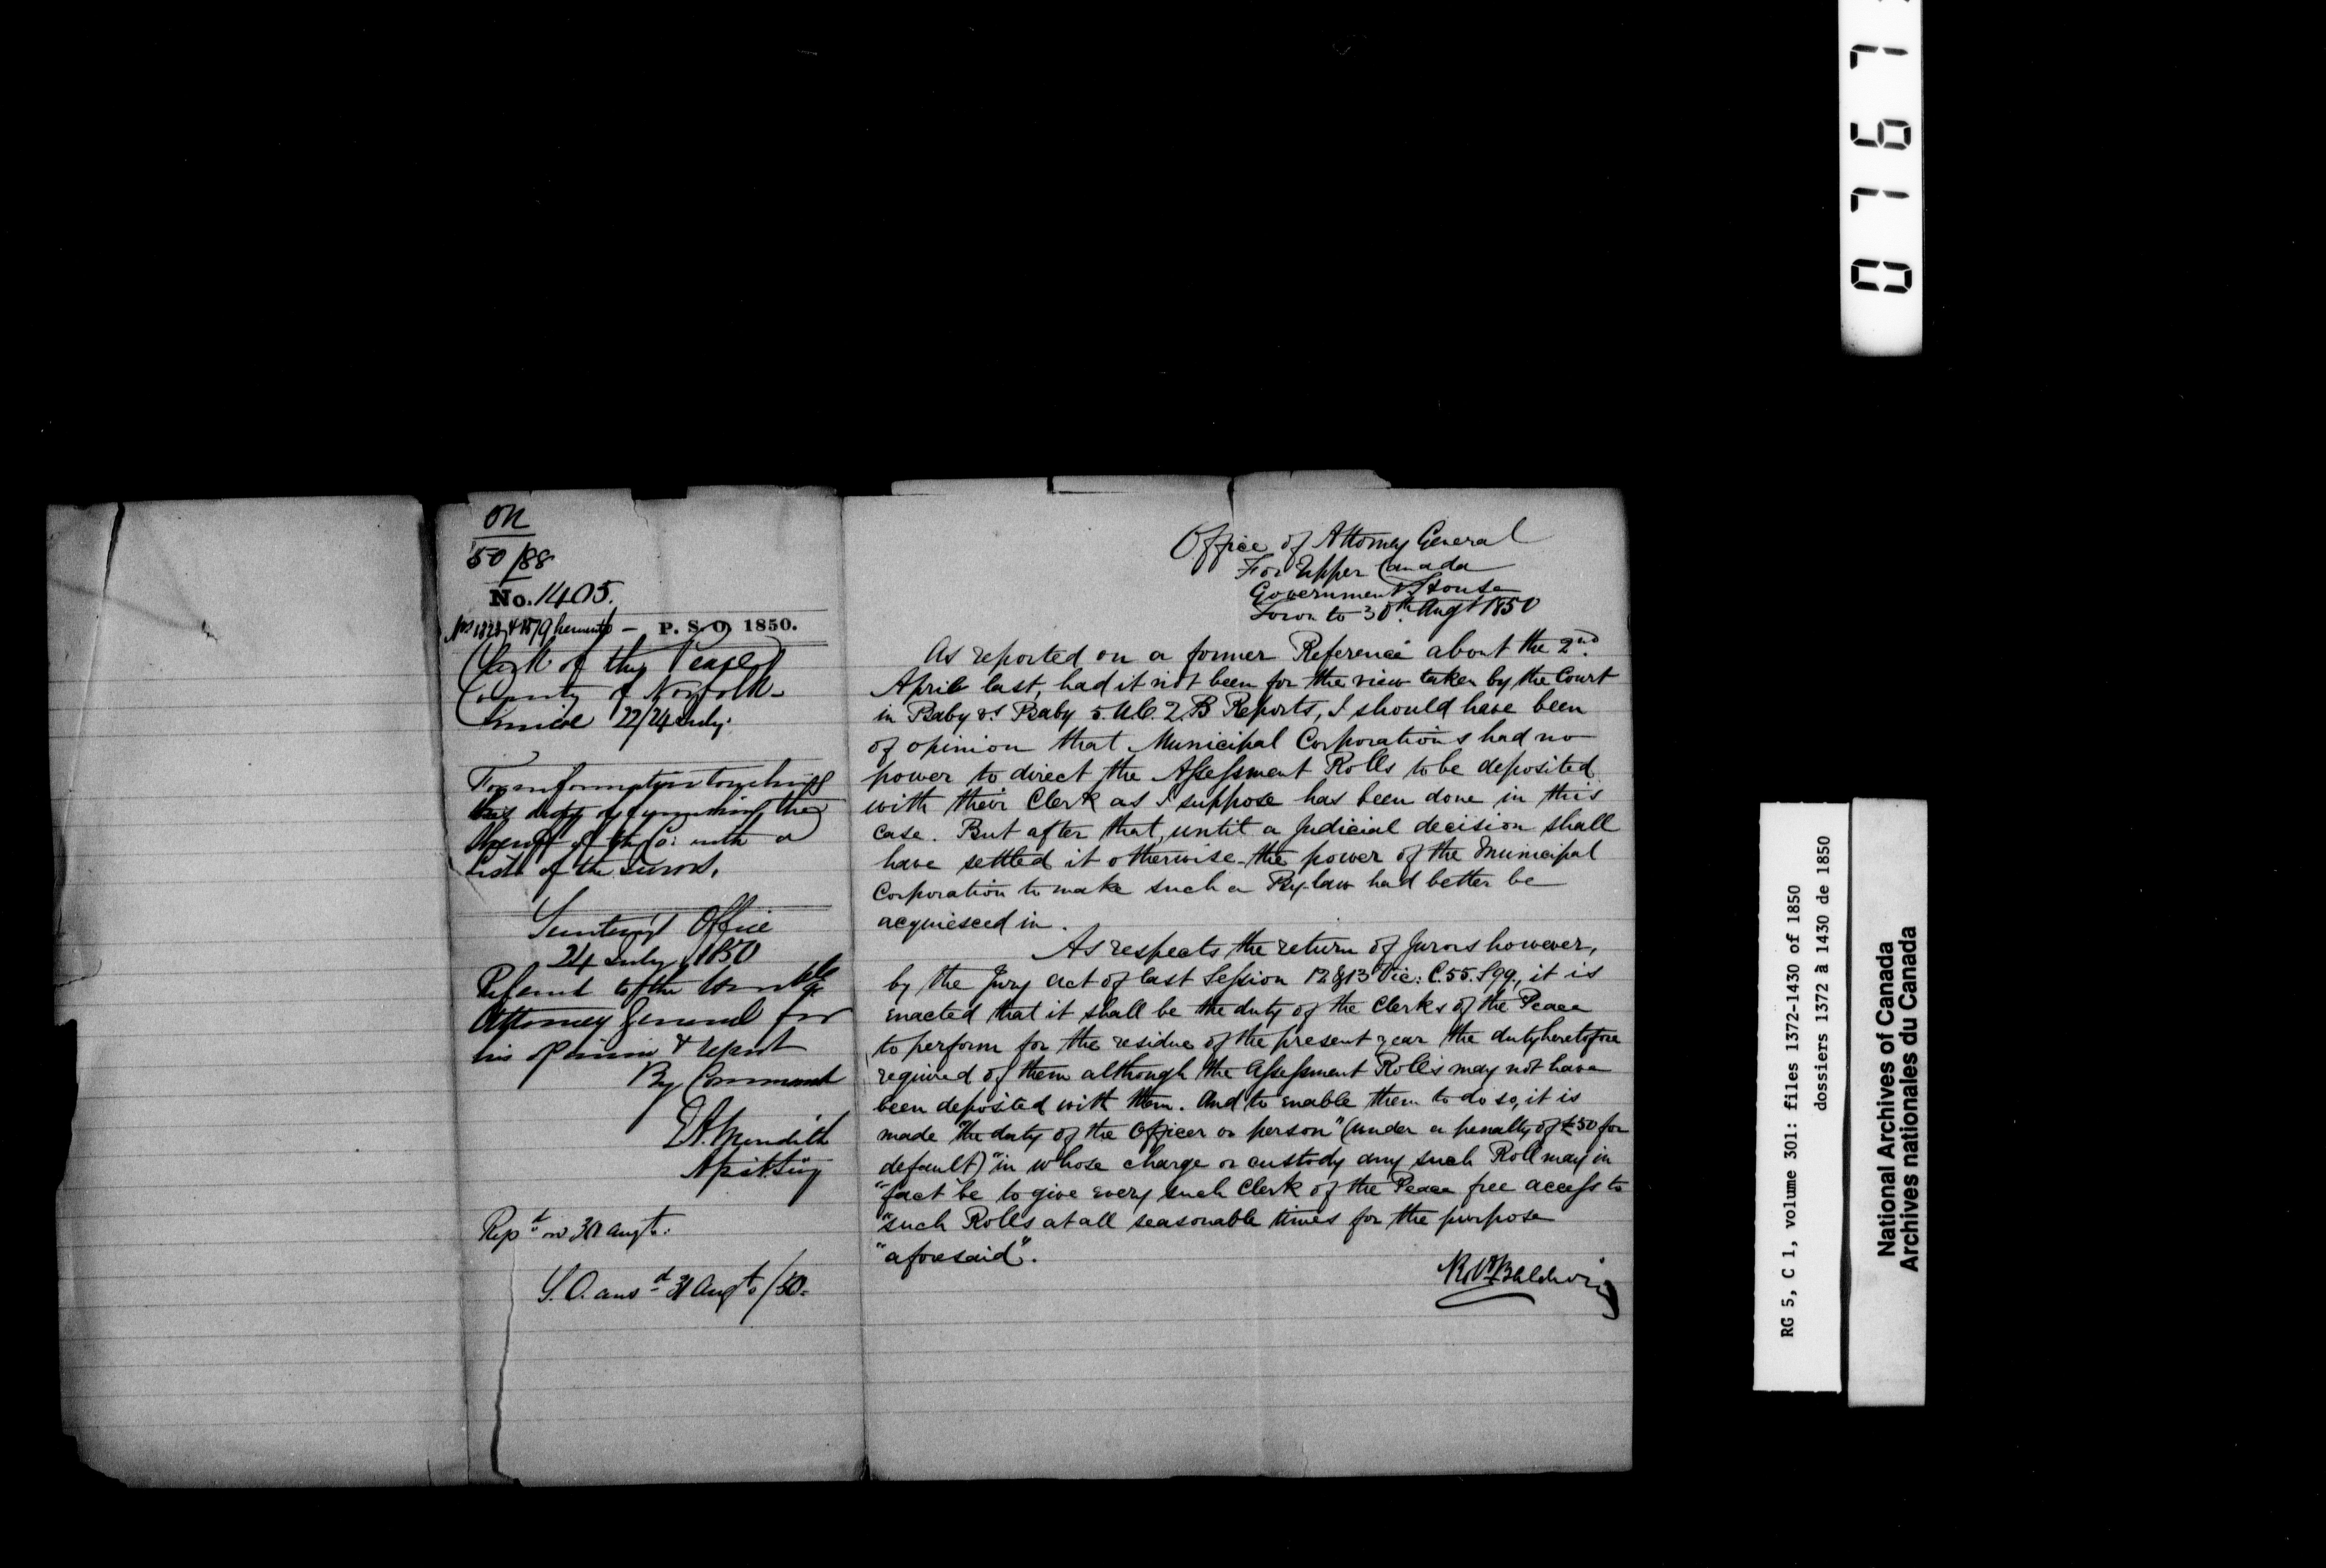 on
50/88
No. 1405.
P. S. O. 1850.
Clerk of the Peace
County of Norfolk -
Simcoe 22/24 July.
For information touching
his duty of furnishing the
Sheriff of the Co: with a
List of the Jurors.
Secretary's Office
24 July 1850
Referred to the Honble
Attorney General for
his opinion & report
By Command
E A. Meredith
Asst. Secy
Repd. on 30 Augt.
S. O. ansd 31 Augt /50.
Office of Attorney General
For Upper Canada
Government House
Toronto 30th. Augt 1850
As reported on a former Reference about the 2nd.
April last, had it not been for the view taken by the Court
in Baby vs Baby 5. U.C. Q.B Reports, I should have been
of opinion that Municipal Corporations had no
power to direct the Assessment Rolls to be deposited
with their Clerk as I suppose has been done in this
case. But after that, until a Judicial decision shall
have settled it otherwise - the power of the Municipal
Corporation to make such a By-law had better be
acquiesced in.
As respects the return of Jurors however,
by the Jury Act of last Session 12 & 13 Vic: C. 55. S 99, it is
enacted that it shall be the duty of the Clerks of the Peace
to perform for the residue of the present year the duty heretofore
required of them although the Assessment Rolls may not have
been deposited with them. And to enable them to do so, it is
made "the duty of the Officer or person" (under a penalty of £50 for
default) "in whose charge or custody any such Roll may in
"fact be to give every such Clerk of the Peace free access to
"such Rolls at all seasonable times for the purpose
"aforesaid".
Robt Baldwin
0767
RG 5, C 1, volume 301: files 1372-1430 of 1850
dossiers 1372 à 1430 de 1850
National Archives of Canada
Archives nationales du Canada